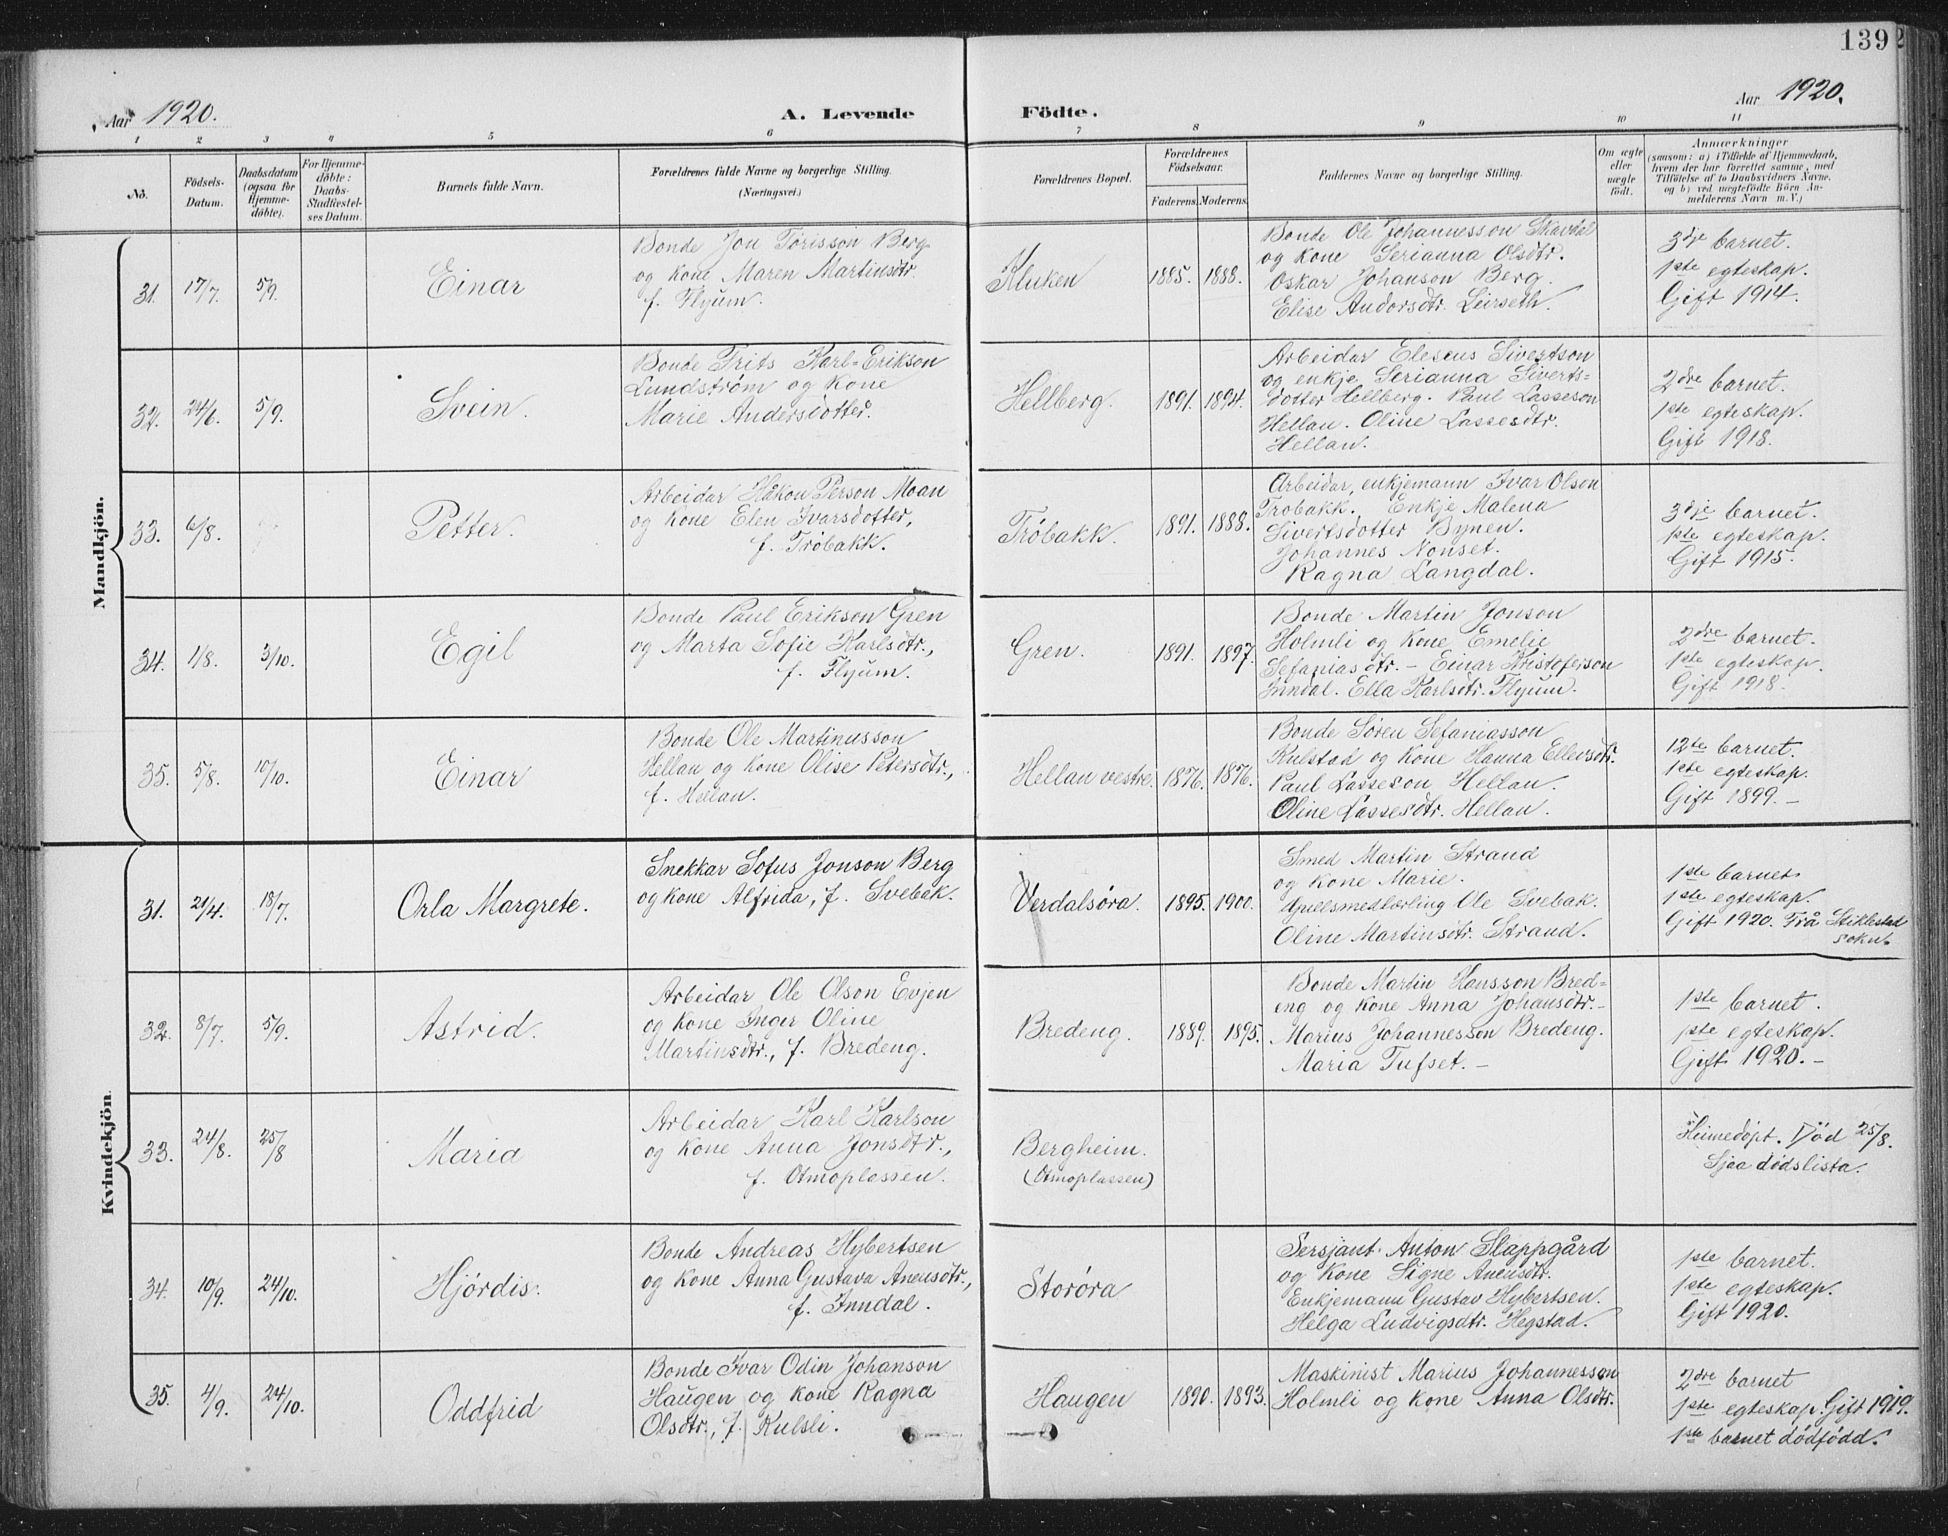 139
Aar 1920.
A. Levende Födte.
Aar 1920.
1 2 3 4 5 6 7 8 9 10 11
No.
Födsels-Datum.
Daabsdatum (ogsaa for Hjemme-döbte).
For Hjemme-döbte: Daabs-Stadfæstel-ses Datum.
Barnets fulde Navn.
Forældrenes fulde Navne og borgerlige Stilling.
(Næringsvei.)
Forældrenes Bopæl.
Forældrenes Födselsaar.
Faderens. Moderens.
Faddernes Navne og borgerlige Stilling.
Om ægte eller uægte födt.
Anmærkninger
(saasom: a) i Tilfælde af Hjemmedaab,
hvem der har forrettet samme, med
Tilföielse af to Daabsvidners Navne,
og b) ved uægtefödte Börn An-
melderens Navn m. V.)
Mandkjön.
31. 17/7. 5/9. Einar
Bonde Jon Torisson Berg
og kone Maren Martinsdtr.
f. Flyum.
Kluken 1885. 1888.
Bonde Ole Johannesson Skavdal
og kone Serianna Olsdtr.
Oskar Johanson Berg.
Elise Andorsdtr. Leirseth.
3dje barnet.
1ste egteskap.
Gift 1914.
32. 24/6. 5/9. Svein.
Bonde Frits Karl-Erikson
Lundstrøm og kone
Marie Andersdotter.
Hellberg. 1891. 1894.
Arbeidar Eleseus Sivertson
og enkje Serianna Siverts-
dotter Hellberg. Paul Lasseson
Hellan. Oline Lassesdtr.
Hellan.
2dre barnet.
1ste egteskap.
Gift 1918.
33. 6/8. Petter.
Arbeidar Håkon Person Moan
og kone Elen Ivarsdotter,
f. Trøbakk.
Trøbakk. 1891. 1888.
Arbeidar, enkjemann Ivar Olson
Trøbakk. Enkje Malena
Sivertsdotter Bynen.
Johannes Nonset.
Ragna Langdal.
3dje barnet.
1ste egteskap.
Gift 1915.
34. 1/8. 3/10. Egil
Bonde Paul Erikson Gren
og Marta Sofie Karlsdtr.,
f. Flyum.
Gren. 1891. 1897.
Bonde Martin Jonson
Holmli og kone Emelie
Sefaniasdtr. - Einar Kristoferson
Inndal. Ella Karlsdtr. Flyum.
2dre barnet.
1ste egteskap.
Gift 1918.
35. 5/8. 10/10. Einar
Bonde Ole Martinusson
Hellan og kone Olise Petersdtr.,
f. Hellan.
Hellan vestre. 1876. 1876.
Bonde Søren Sefaniasson
Kulstad og kone Hanna Ellevsdtr.
Paul Lasseson Hellan.
Oline Lassesdtr. Hellan.
12te barnet
1ste egteskap.
Gift 1899. -
Kvindekjön.
31. 21/4. 18/7. Orla Margrete.
Snekkar Sofus Jonson Berg
og kone Alfrida, f. Svebak.
Verdalsøra. 1895. 1900.
Smed Martin Strand
og kone Marie.
Ole Svebak.
Oline Martinsdtr. Strand.
1ste barnet
1ste egteskap.
Gift 1920. Frå Stiklestad
sokn.
32. 8/7. 5/9. Astrid.
Arbeidar Ole Olson Evjen
og kone Inger Oline
Martinsdtr., f. Bredeng.
Bredeng. 1889. 1895.
Bonde Martin Hansson Bred-
eng og kone Anna Johansdtr. -
Marius Johannesson Bredeng.
Maria Tufset. -
1ste barnet.
1ste egteskap.
Gift 1920. -
33. 24/8. 25/8 Maria
Arbeidar Karl Karlson
og kone Anna Jonsdtr.,
f. Otmoplassen.
Bergheim.
(Otmoplassen)
Heimedøpt. Død 25/8.
Sjaa dødslista.
34. 10/9. 24/10. Hjørdis.
Bonde Andreas Hybertsen
og kone Anna Gustava Aneusdtr.,
f. Inndal.
Storøra
Sersjant Anton Slappgård
og kone Signe Aneusdtr.
Enkjemann Gustav Hybertsen.
Helga Ludvigsdtr. Hegstad.
1ste barnet.
1ste egteskap.
Gift 1920.
35. 4/9. 24/10. Oddfrid
Bonde Ivar Odin Johanson
Haugen og kone Ragna
Olsdtr., f. Kulsli.
Haugen 1890. 1893.
Maskinist Marius Johannesson
Holmli og kone Anna Olsdtr.
2dre barnet
1ste egteskap. Gift 1919.
1ste barnet dødfødd.